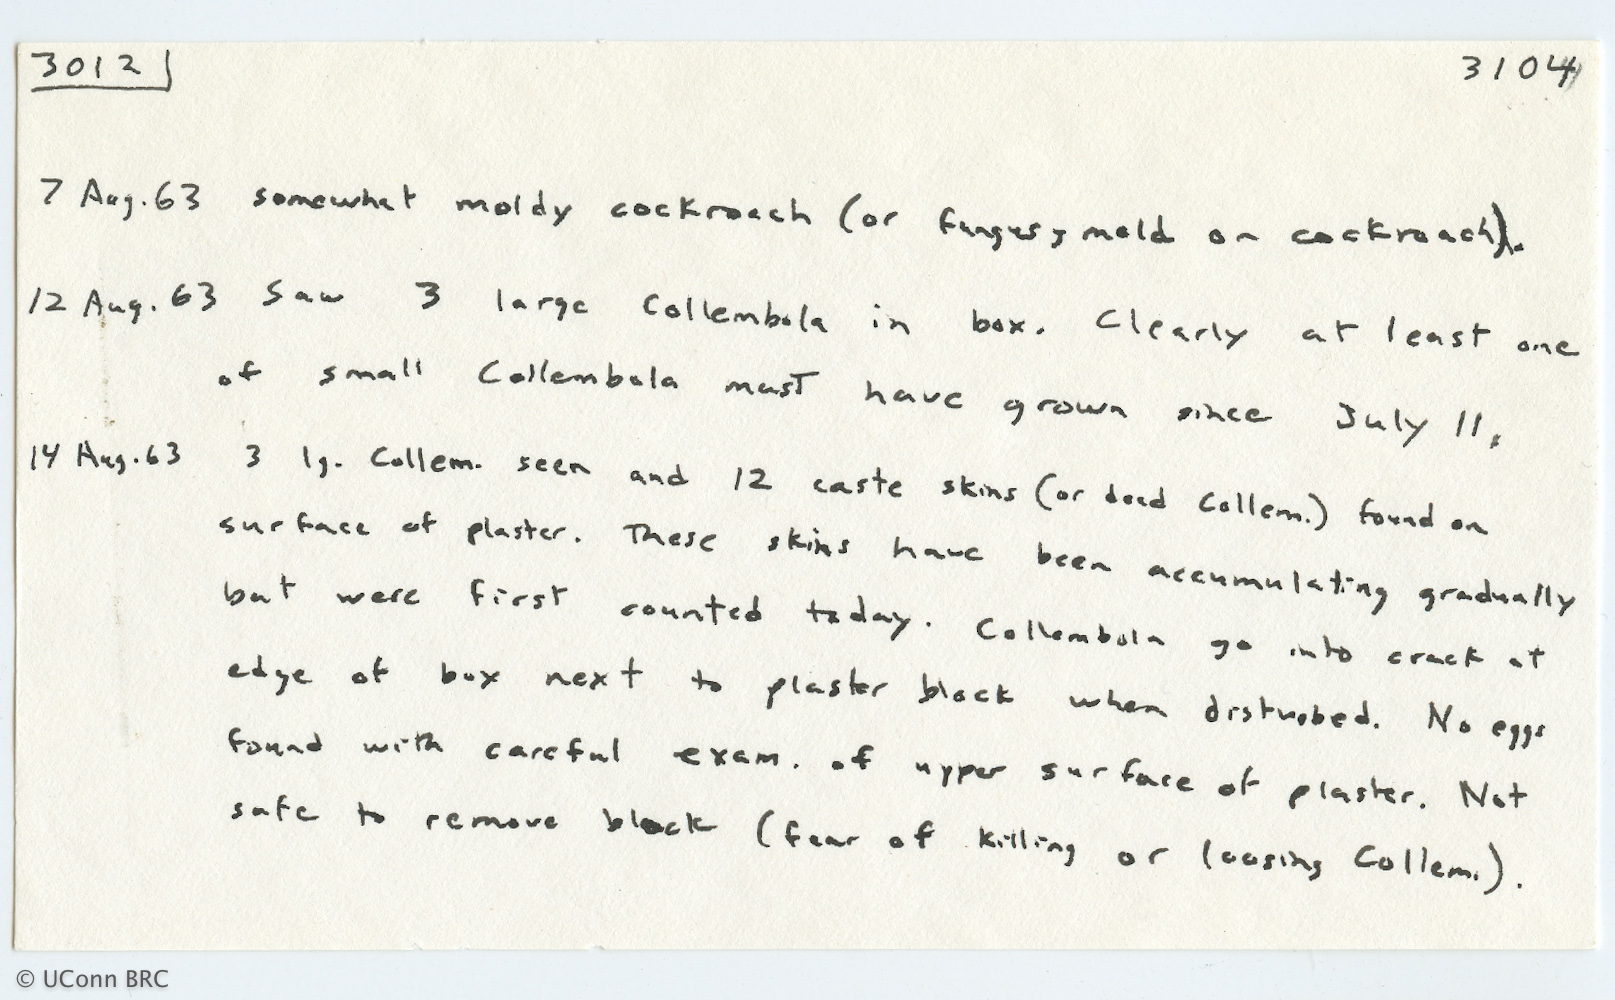 3012 3104
7 Aug. 63 somewhat moldy cockroach (or fungus, mold on cockroach).
12 Aug. 63 Saw 3 large Collembola in box. Clearly at least one
of small Collembola must have grown since July 11.
14 Aug. 63 3 lg. Collem. seen and 12 caste skins (or dead Collem.) found on
surface of plaster. These skins have been accumulating gradually
but were first counted today. Collembola go into crack at
edge of box next to plaster block when disturbed. No eggs
found with careful exam. of upper surface of plaster. Not
safe to remove block (fear of killing or loosing Collem.).
© UConn BRC